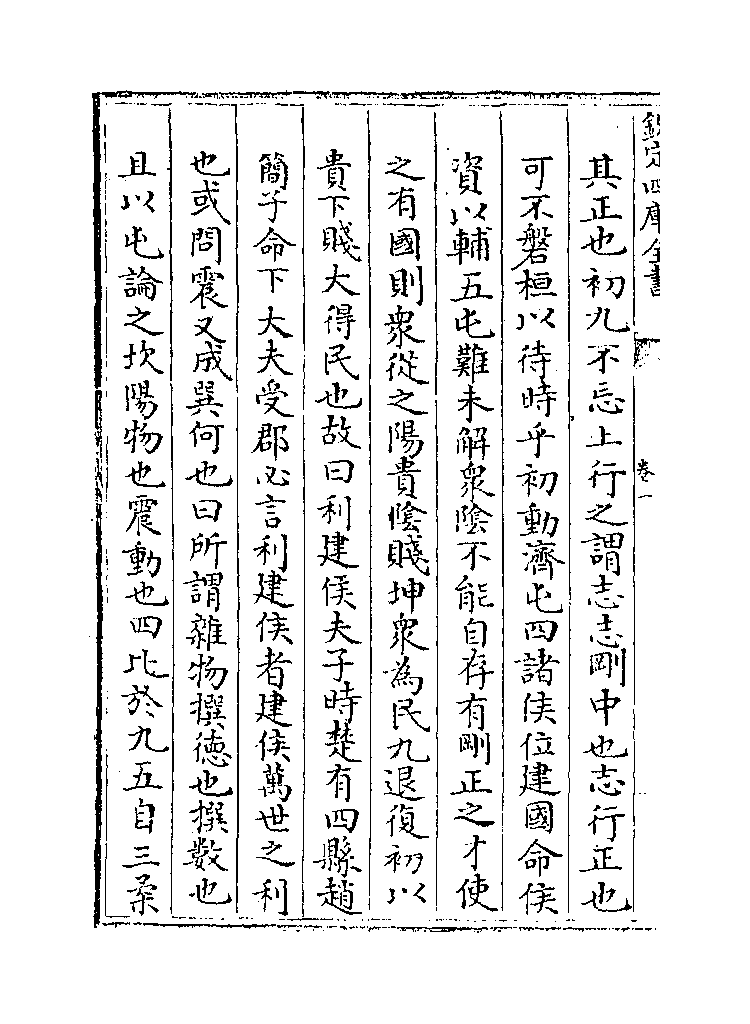 欽定四庫全書
卷一
其正也初九不忘上行之謂志志剛中也志行正也
可不磐桓以待時乎初動濟屯四諸侯位建國命侯
資以輔五屯難未解衆陰不能自存有剛正之才使
之有國則衆從之陽貴陰賤坤衆為民九退復初以
貴下賤大得民也故曰利建侯夫子時楚有四縣趙
簡子命下大夫受郡必言利建侯者建侯萬世之利
也或問震又成巽何也曰所謂雜物撰德也撰數也
且以屯論之坎陽物也震動也四比於九五自三柔